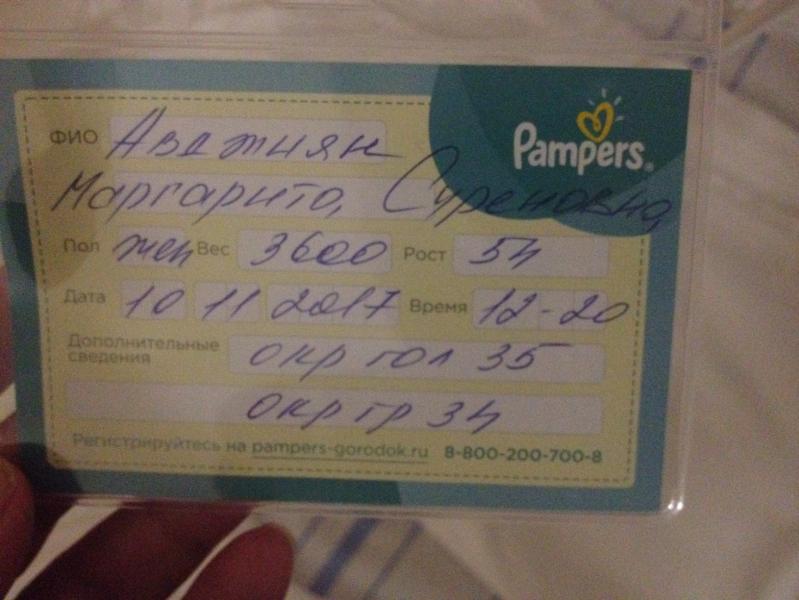 Pampers®
ФИО Авджиян
Маргарита, Суреновна
Пол жен Вес 3600 Рост 54
Дата 10 11 2017 Время 12-20
Дополнительные
сведения окр гол 35
окр гр 34
Регистрируйтесь на pampers-gorodok.ru 8-800-200-700-8